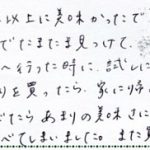 以上に美味かったで
でたまたま見つけて、
へ行った時に、試しに
りを買ったら、家に帰
でたら あまりの美味さに
べてしまいました。また買